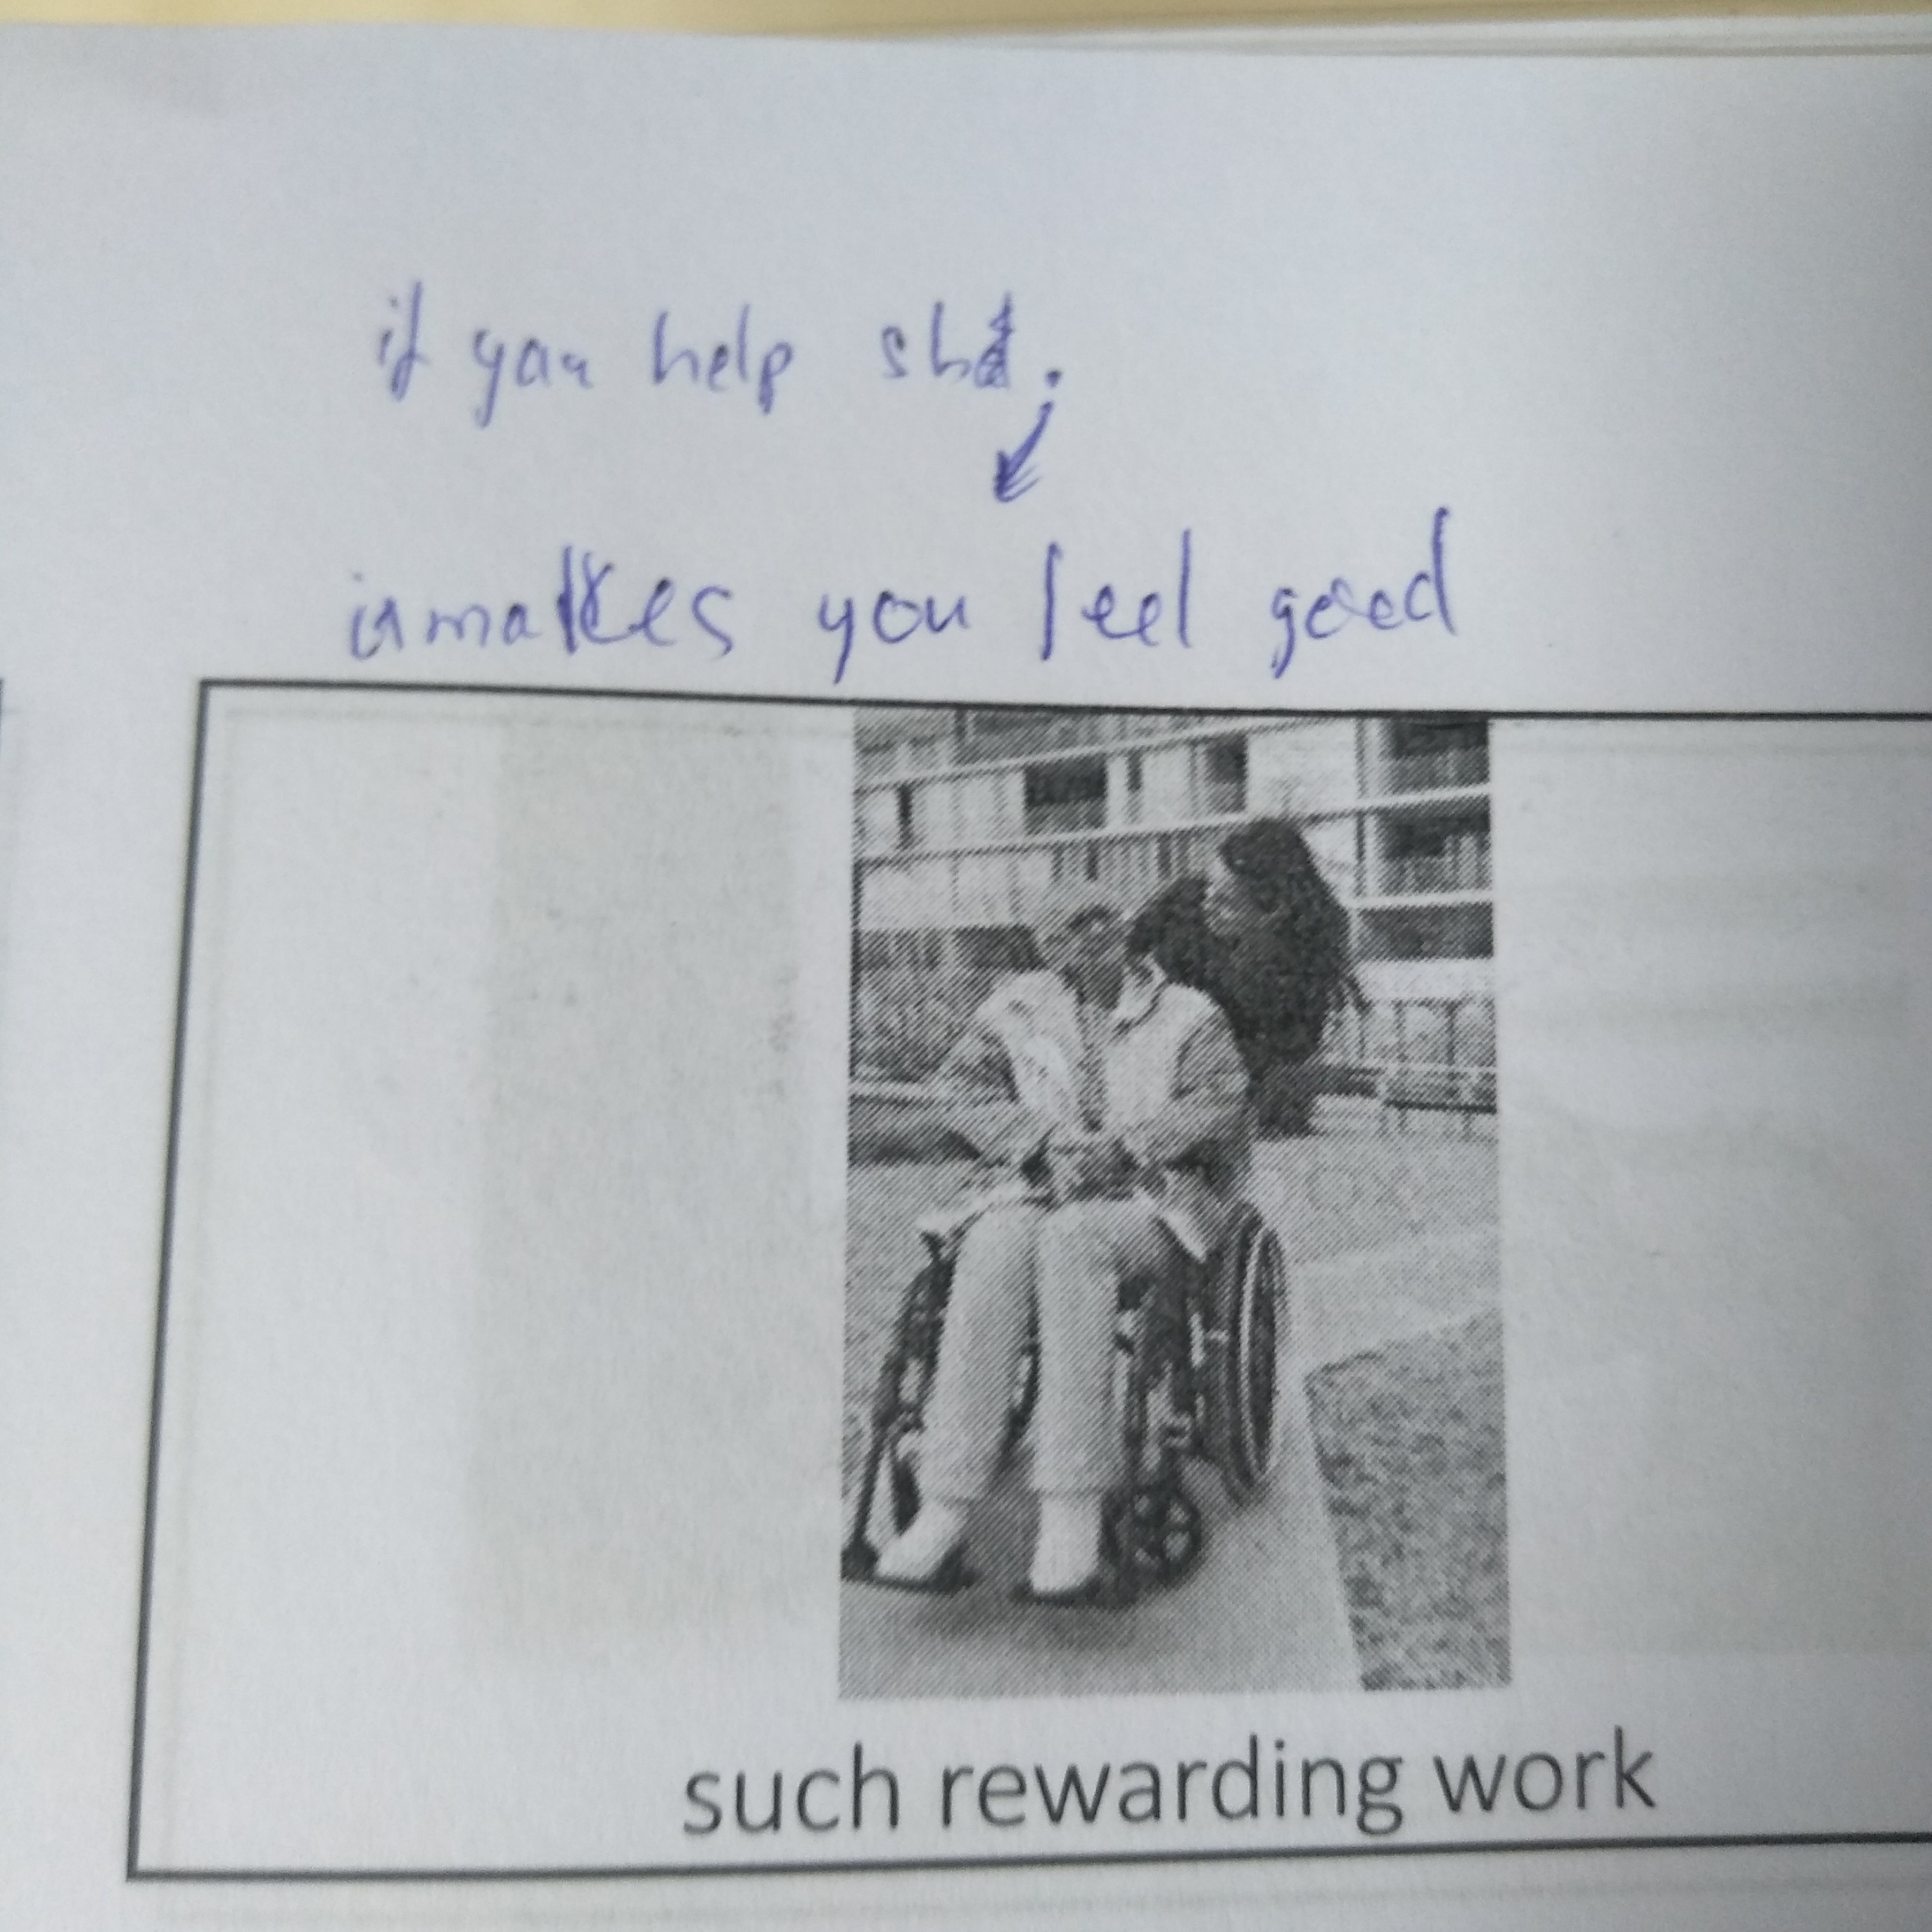 if you help sbd.
it makes you feel good
such rewarding work